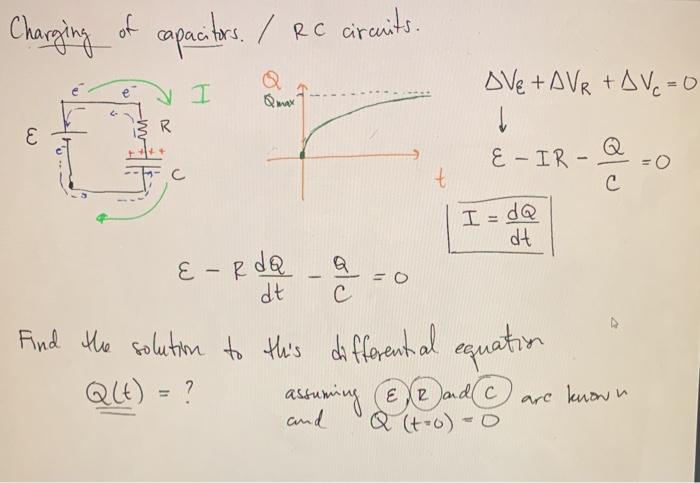 Charging of capacitors. / RC circuits.
e⁻ e⁻ I
ε R
e⁻ + + + +
C
Q
Qmax
t
ΔVε + ΔVR + ΔVc = 0
↓
ε - IR - Q/C = 0
I = dQ/dt
ε - R dQ/dt - Q/C = 0
Find the solution to this differential equation
Q(t) = ? assuming ε, R and C are known
and Q (t=0) = 0